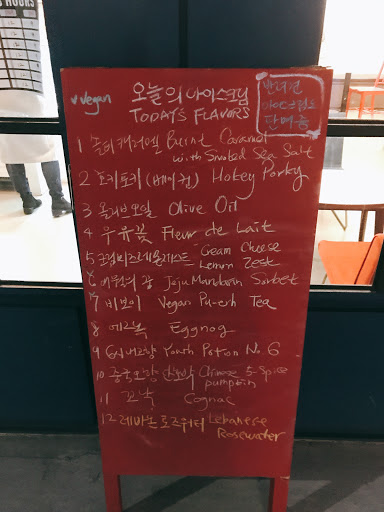 HOURS
v vegan
오늘의 아이스크림
TODAY'S FLAVORS
반려견
아이스크림도
판매중
1 솔티캐러멜 Burnt Caramel
with Smoked Sea Salt
2 호키포키 (베이컨) Hokey Porky
3 올리브오일 Olive Oil
4 우유꽃 Fleur de Lait
5 크림치즈레몬제스트 Cream Cheese
Lemon Zest
6 Jeju Mandarin Sorbet
7 Vegan Pu-erh Tea
8 에그녹 Eggnog
9 Youth Potion No 6
10 중국오향 단호박 Chinese 5-Spice
pumpkin
11 꼬냑 Cognac
12 레바논 로즈워터 Lebanese
Rosewater